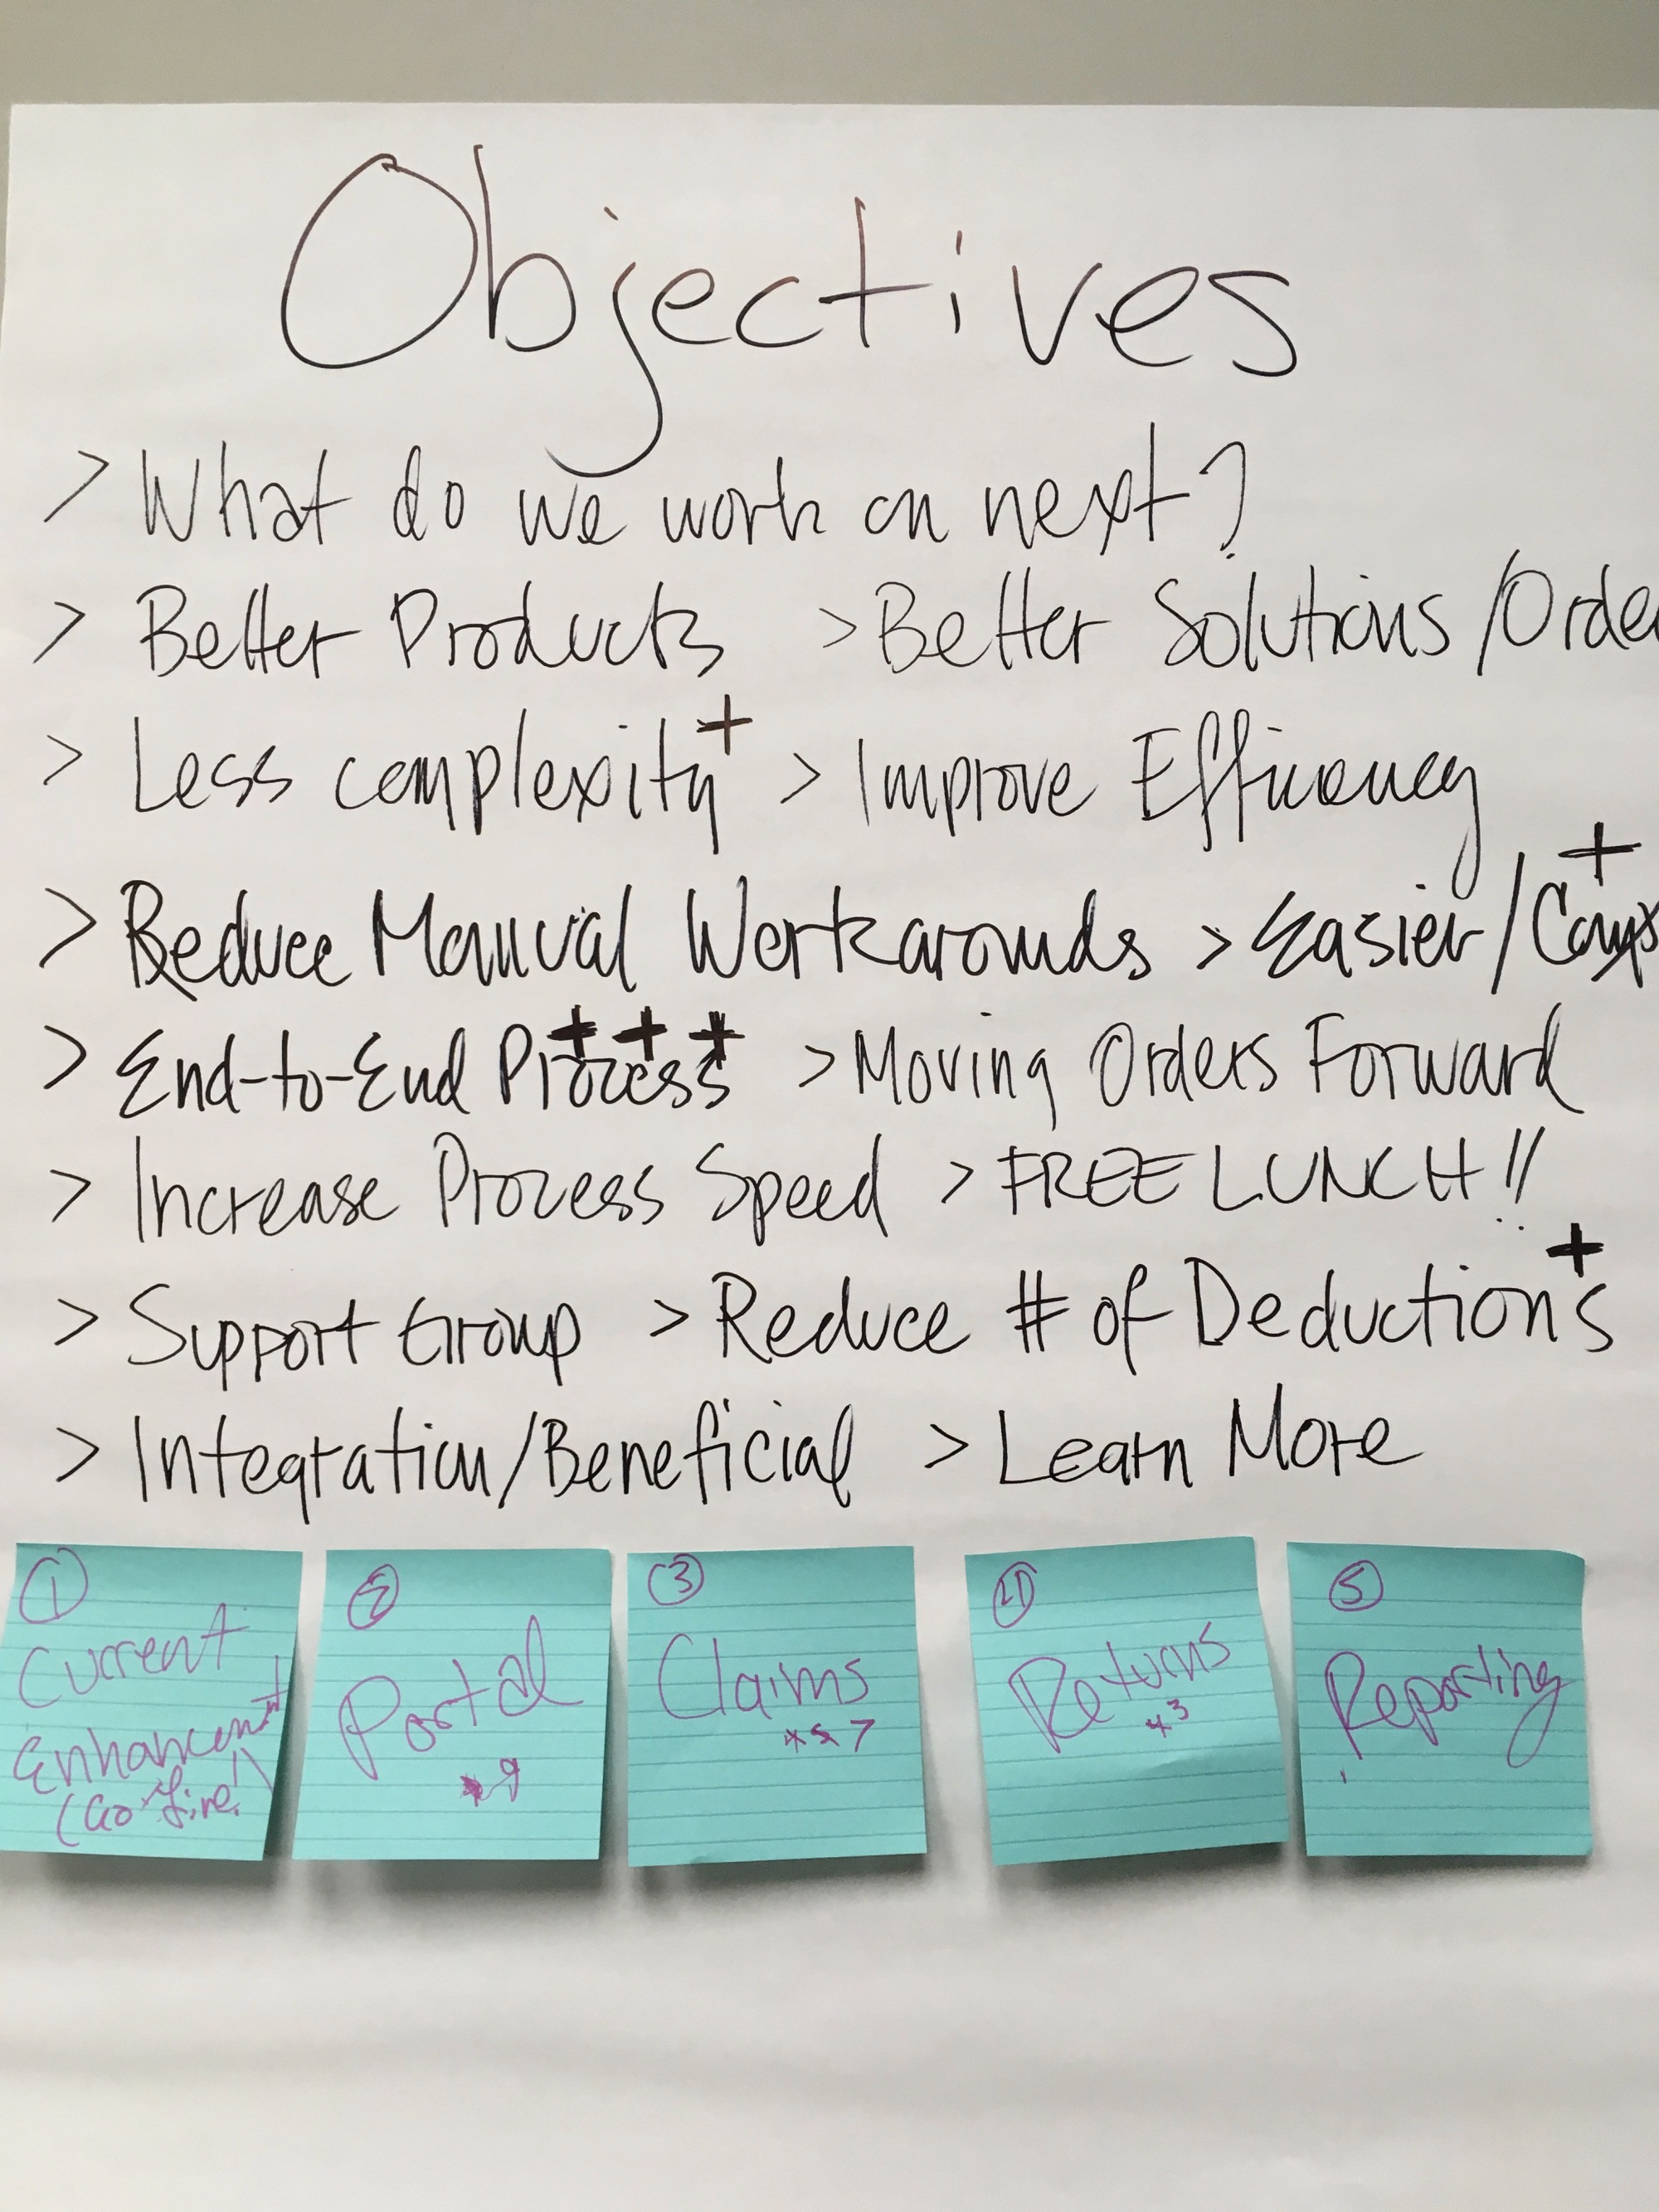 Objectives
> What do we work on next?
> Better Products > Better Solutions /Orde
> Less complexity + > Improve Efficiency
> Reduce Manual Workarounds > Easier/ +
> End-to-End Process +++ > Moving Orders Forward
> Increase Process Speed > FREE LUNCH!!
> Support Group > Reduce # of Deductions +
> Integration/Beneficial > Learn More
① Current
Enhancement
(Go-Live!)
② Portal
9
③ Claims
7
④ Returns
3
⑤ Reporting